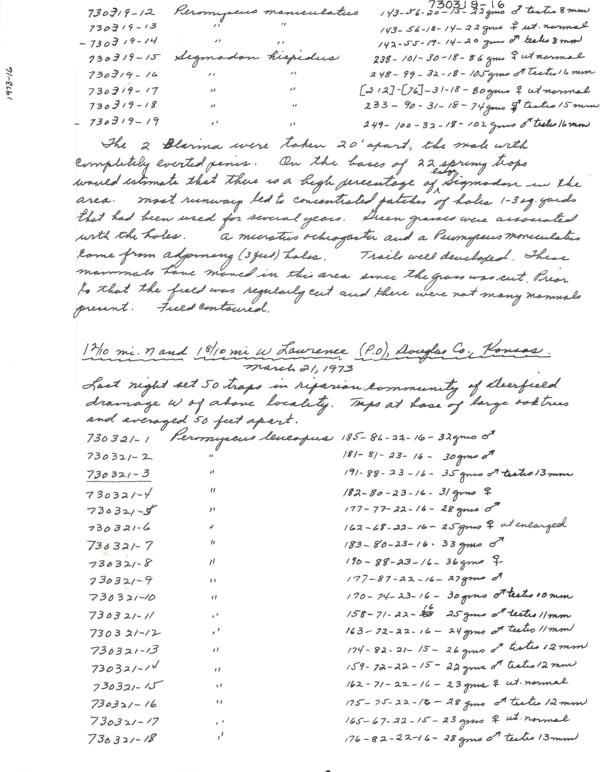 730319-16
730319-12 Peromyscus maniculatus 143-56-20-15-22gms ♂ testis 8mm
730319-13 " " 143-56-18-14-22gms ♀ ut. normal
- 730319-14 " " 142-55-19-14-20 gms ♂ testis 8mm
730319-15 Sigmodon hispidus 238-101-30-18-86 gms ♀ ut normal
730319-16 " " 248-99-32-18-105gms ♂ testis 16mm
730319-17 " " [212]-[76]-31-18-80gms ♀ ut normal
730319-18 " " 233-90-31-18-74gms ♂ testis 15mm
- 730319-19 " " 249-100-32-18-102gms ♂ testis 16mm
1973-16
The 2 Blarina were taken 20' apart, the male with
completely everted penis. On the bases of 22 spring traps
would estimate that there is a high percentage of Sigmodon in the
area. Most runways led to concentrated patches of holes 1-3 sq. yards
that had been used for several years. Green grasses were associated
with the holes. A microtus ochrogaster and a Peromyscus maniculatus
come from adjoining (3 feet) holes. Trails well developed. These
mammals have moved in this area since the grass was cut. Prior
to that the field was regularly cut and there were not many mammals
present. Field contoured.
1 2/10 mi. N and 1 8/10 mi W Lawrence (P.O), Douglas Co., Kansas.
March 21, 1973
Last night set 50 traps in riparian community of Deerfield
drainage W of above locality. Traps at base of large oak trees
and averaged 50 feet apart.
730321-1 Peromyscus leucopus 185-86-22-16-32gms ♂
730321-2 " 181-81-23-16-30gms ♂
730321-3 " 191-88-23-16-35gms ♂ testis 13mm
730321-4 " 182-80-23-16-31 gms ♀
730321-5 " 177-77-22-16-28gms ♂
730321-6 " 162-68-22-16-25gms ♀ ut enlarged
730321-7 " 183-80-23-16-33 gms ♂
730321-8 " 190-88-23-16-36gms ♀
730321-9 " 177-87-22-16-27gms ♂
730321-10 " 170-74-23-16-30gms ♂ testes 10mm
730321-11 " 158-71-22-16 25gms ♂ testis 11mm
730321-12 " 163-72-22-16-24gms ♂ testis 11mm
730321-13 " 174-82-21-15-26gms ♂ testes 12mm
730321-14 " 159-72-22-15-22gms ♂ testis 12mm
730321-15 " 162-71-22-16-23gms ♀ ut. normal
730321-16 " 175-75-22-16-28 gms ♂ testis 12mm
730321-17 " 165-67-22-15-23gms ♀ ut. normal
730321-18 " 176-82-22-16-28 gms ♂ testis 13mm